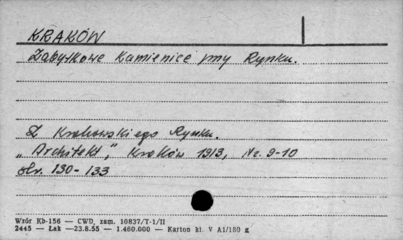 KRAKÓW
Zabytkowe kamienice przy Rynku.
Z Krakowskiego Rynku.
"Architekt", Kraków 1913, Nr. 9-10
str. 130-133
Wzór Kb-156 — CWD, zam. 10837/T-1/II
2445 — Łak — 23.8.55 — 1.460.000 — Karton kl. V A1/180 g